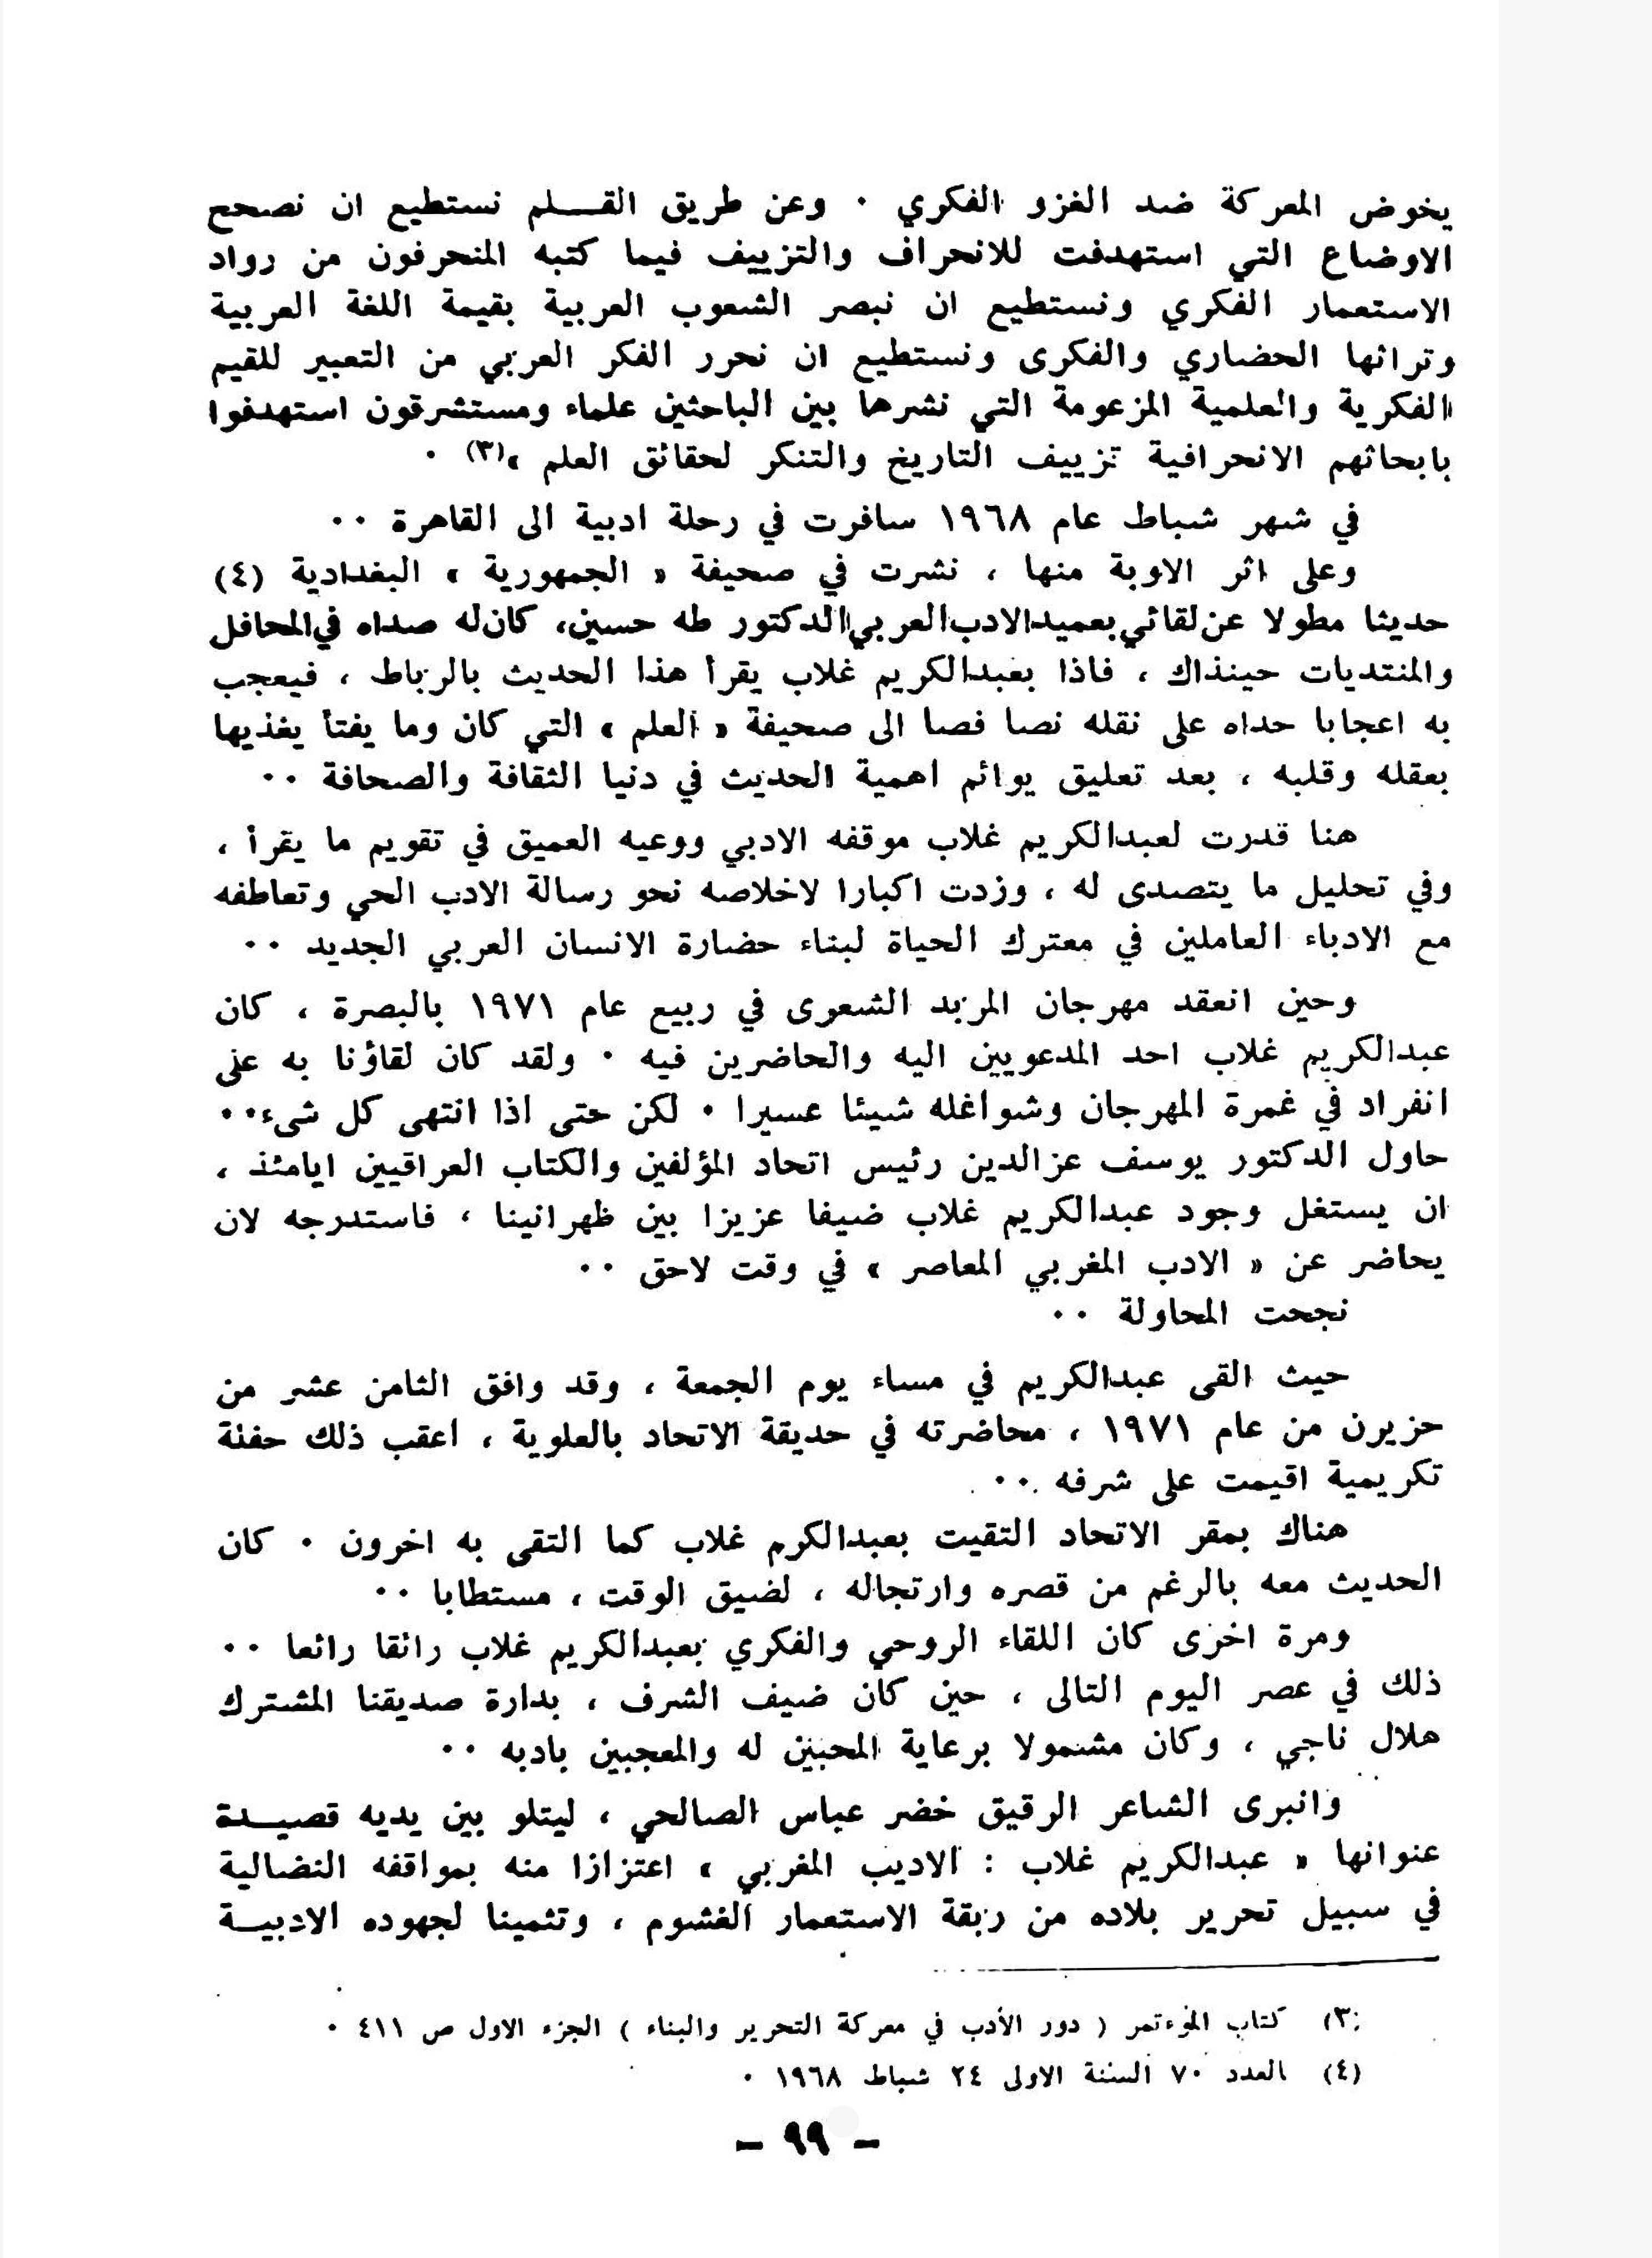 يخوض المعركة ضد الغزو الفكري · وعن طريق القـــلم نستطيع ان نصحح
الاوضاع التي استهدفت للانحراف والتزييف فيما كتبه المنحرفون من رواد
الاستعمار الفكري ونستطيع ان نبصر الشعوب العربية بقيمة اللغة العربية
وتراثها الحضاري والفكرى ونستطيع ان نحرر الفكر العربي من التعبير للقيم
الفكرية والعلمية المزعومة التي نشرها بين الباحثين علماء ومستشرقون استهدفوا
بابحاثهم الانحرافية تزييف التاريخ والتنكر لحقائق العلم »(٣) ·
في شهر شباط عام ١٩٦٨ سافرت في رحلة ادبية الى القاهرة ··
وعلى اثر الاوبة منها ، نشرت في صحيفة « الجمهورية » البغدادية (٤)
حديثا مطولا عن لقائي بعميد الادب العربي الدكتور طه حسين، كان له صداه في المحافل
والمنتديات حينذاك ، فاذا بعبدالكريم غلاب يقرأ هذا الحديث بالرباط ، فيعجب
به اعجابا حداه على نقله نصا فصا الى صحيفة « العلم » التي كان وما يفتأ يغذيها
بعقله وقلبه ، بعد تعليق يوائم اهمية الحديث في دنيا الثقافة والصحافة ··
هنا قدرت لعبدالكريم غلاب موقفه الادبي ووعيه العميق في تقويم ما يقرأ ،
وفي تحليل ما يتصدى له ، وزدت اكبارا لاخلاصه نحو رسالة الادب الحي وتعاطفه
مع الادباء العاملين في معترك الحياة لبناء حضارة الانسان العربي الجديد ··
وحين انعقد مهرجان المربد الشعرى في ربيع عام ١٩٧١ بالبصرة ، كان
عبدالكريم غلاب احد المدعويين اليه والحاضرين فيه · ولقد كان لقاؤنا به على
انفراد في غمرة المهرجان وشواغله شيئا عسيرا · لكن حتى اذا انتهى كل شىء··
حاول الدكتور يوسف عزالدين رئيس اتحاد المؤلفين والكتاب العراقيين ايامئذ ،
ان يستغل وجود عبدالكريم غلاب ضيفا عزيزا بين ظهرانينا ، فاستدرجه لان
يحاضر عن « الادب المغربي المعاصر » في وقت لاحق ··
نجحت المحاولة ··
حيث القى عبدالكريم في مساء يوم الجمعة ، وقد وافق الثامن عشر من
حزيرن من عام ١٩٧١ ، محاضرته في حديقة الاتحاد بالعلوية ، اعقب ذلك حفلة
تكريمية اقيمت على شرفه ··
هناك بمقر الاتحاد التقيت بعبدالكرم غلاب كما التقى به اخرون · كان
الحديث معه بالرغم من قصره وارتجاله ، لضيق الوقت ، مستطابا ··
ومرة اخرى كان اللقاء الروحي والفكري بعبدالكريم غلاب رائقا رائعا ··
ذلك في عصر اليوم التالى ، حين كان ضيف الشرف ، بدارة صديقنا المشترك
هلال ناجي ، وكان مشمولا برعاية المحبين له والمعجبين بادبه ··
وانبرى الشاعر الرقيق خضر عباس الصالحي ، ليتلو بين يديه قصيــدة
عنوانها « عبدالكريم غلاب : الاديب المغربي » اعتزازا منه بمواقفه النضالية
في سبيل تحرير بلاده من ربقة الاستعمار الغشوم ، وتثمينا لجهوده الادبيــة
(٣) كتاب المؤتمر ( دور الأدب في معركة التحرير والبناء ) الجزء الاول ص ٤١١ ·
(٤) العدد ٧٠ السنة الاولى ٢٤ شباط ١٩٦٨ ·
– ٩٩ –